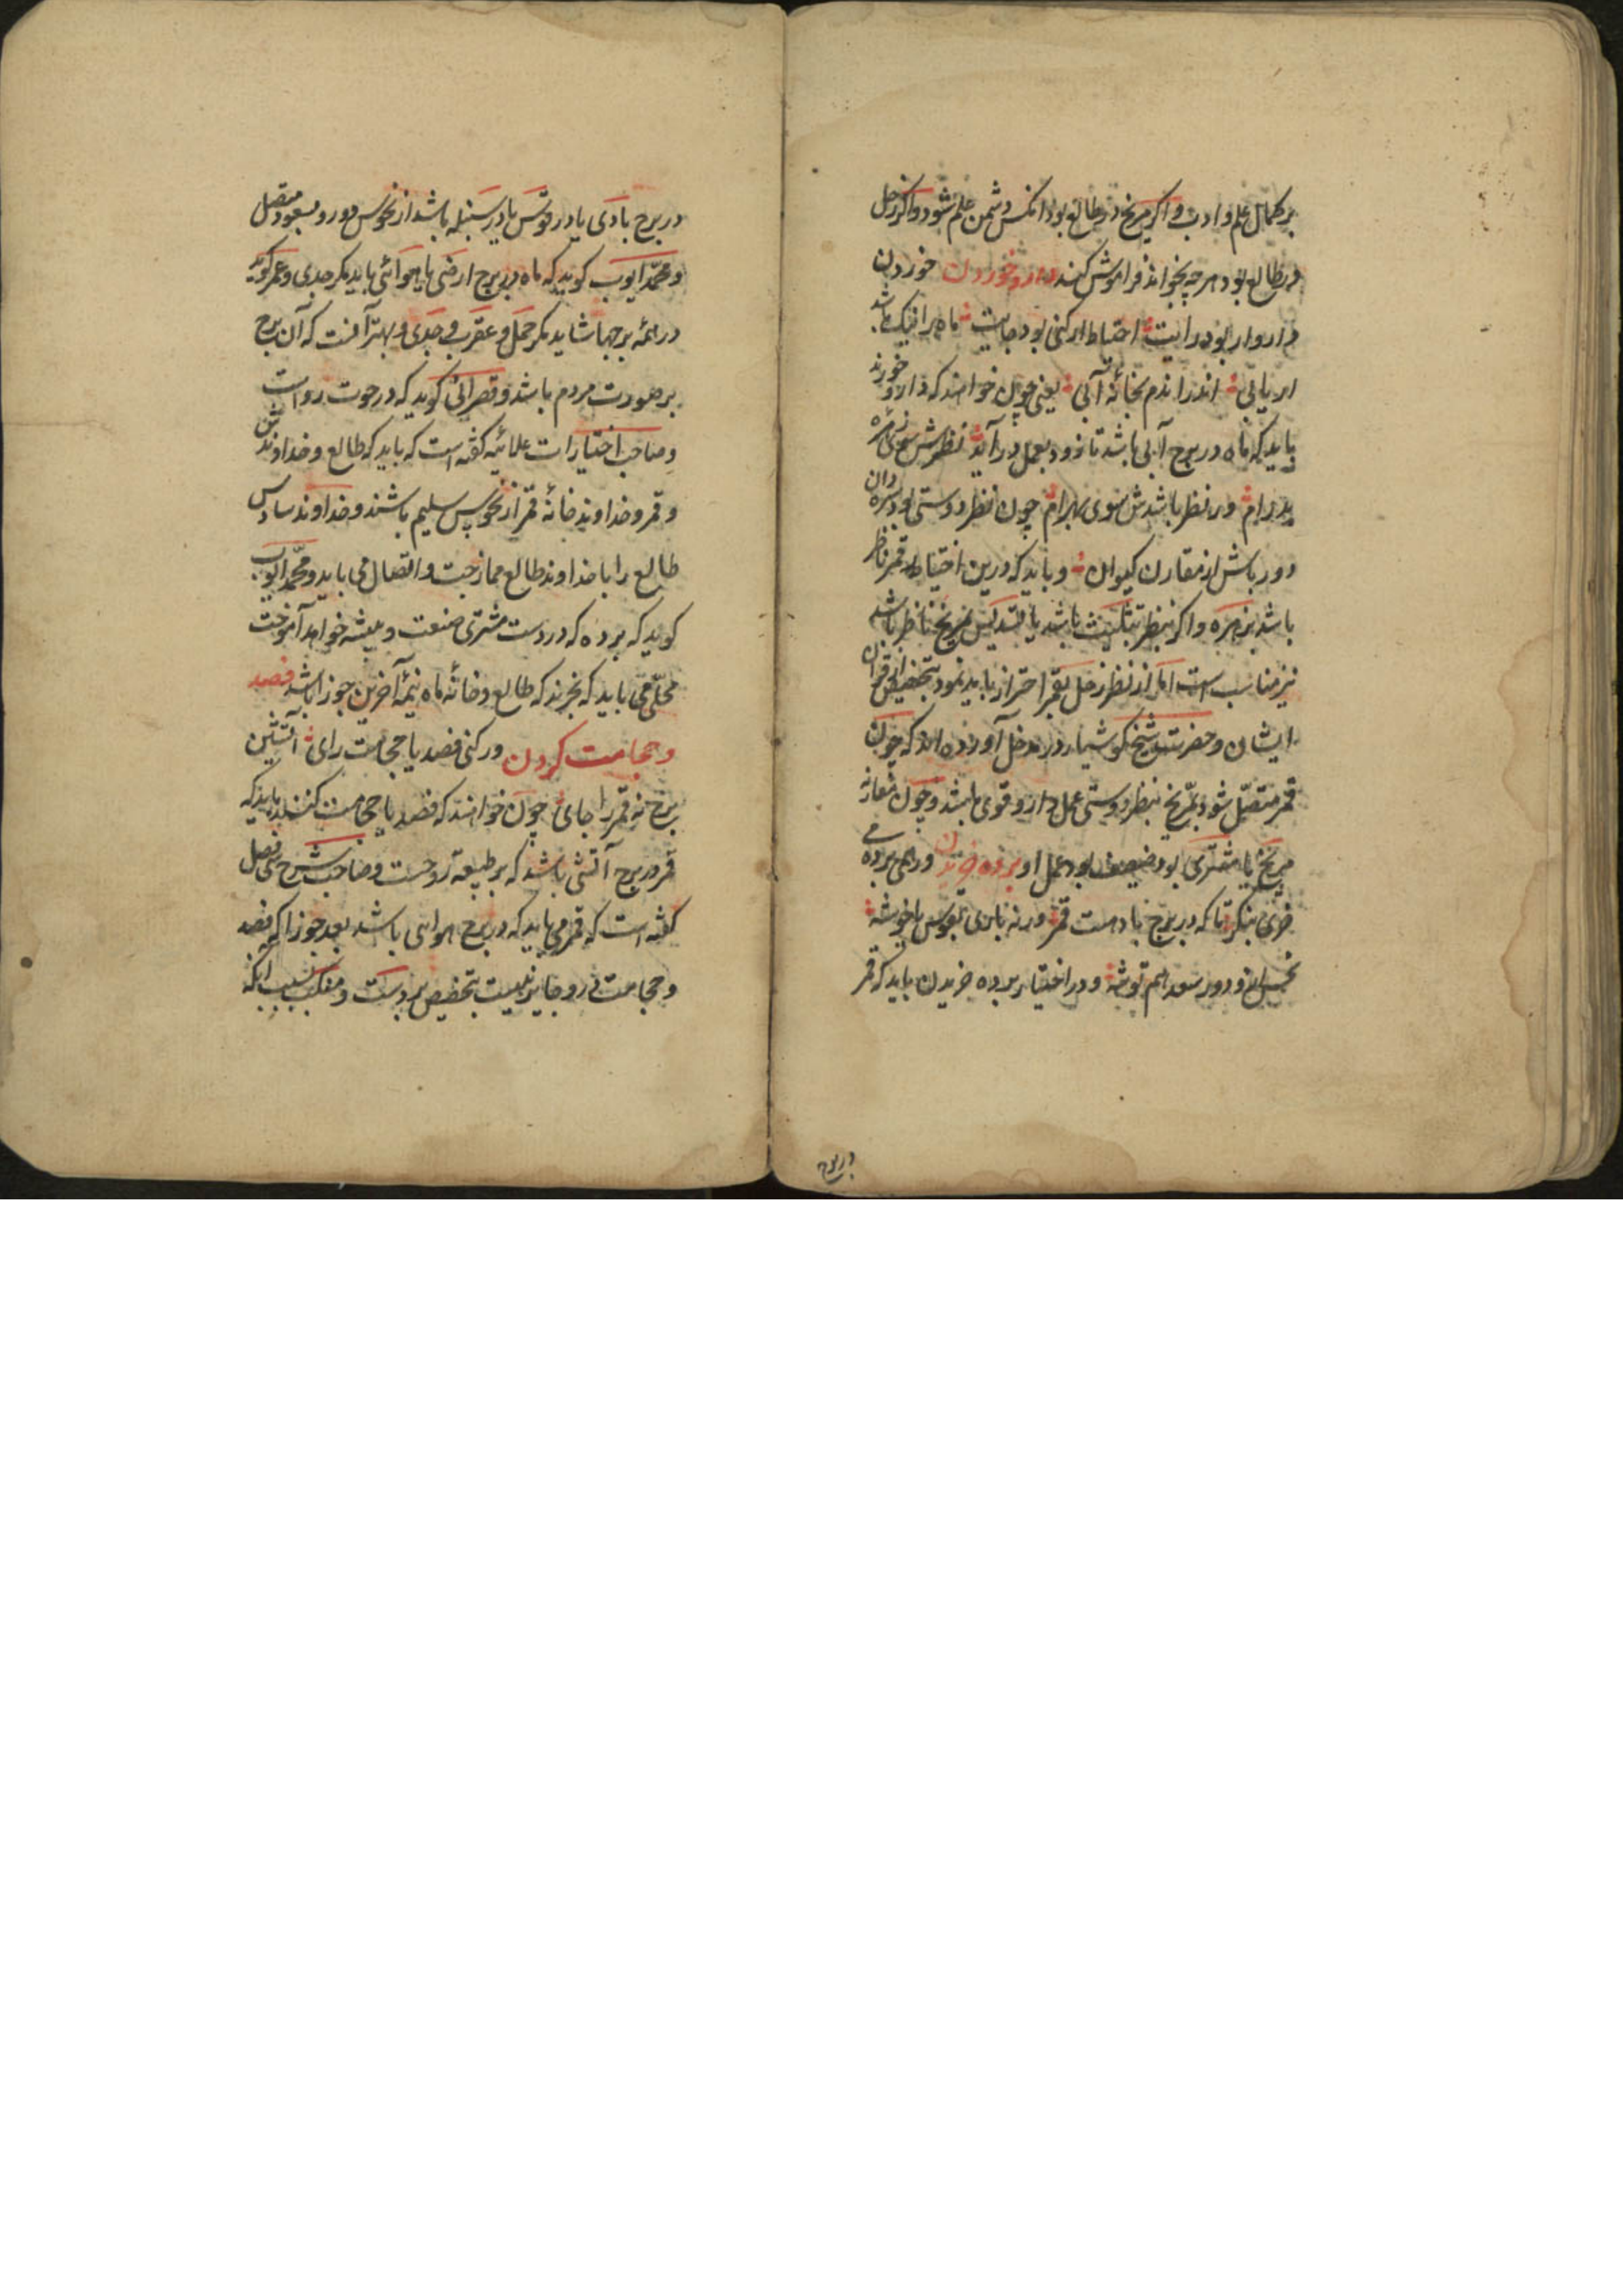 بر کمال علم و ادب و اگر مریخ در طالع بود آنکس دشمن علم شود و اگر زحل
در طالع بود هرچه بخواند فراموش کند دارو خوردن خوردن
دارو ار بود رایت احتیاط ار کنی بود جایت ماه را نیک باشد
ار یابی اندر اندم بخانهٔ آبی یعنی چون خواهند که دارو خورند
باید که ماه در برج آبی باشد تا زود بعمل درآید نظرش سوی زهره
پدرام ور نظر باشدش سوی بهرام چون نظر دوستی بود
دور باش از مقارن کیوان و باید که درین اختیار قمر ناظر
باشد بزهره و اگر بنظر تثلیث باشد یا تسدیس مریخ ناظر باشد
نیز مناسب است اما از نظر زحل بقمر احتراز باید نمود بتخصیص از قران
ایشان و حضرت شیخ کوشیار در مدخل آورده اند که چون
قمر متصل شود بمریخ بنظر دوستی عمل دارو قوی باشد و چون مقارنه
مریخ یا مشتری بود ضعیف بود عمل او برده خریدن ور همی برده
خری بنگر تا که در برج بادهست قمر ور نه یابی بقوس یا خوشه
نحس ازو دور سعد هم توشه و در اختیار برده خریدن باید که قمر
در برج
در برج بادی یا در قوس یا در سنبله باشد از نحوس دور و بسعود متصل
و محمد ایوب کوید که ماه در برج ارضی یا هوائی باید مکر جدی و عمر کوید
در همه برجها شاید مکر حمل و عقرب و جدی و بهتر آنست که آن برج
بر صورت مردم باشد و قصرانی کوید که در حوت رواست
و صاحب اختیارات علائیه کفته است که باید که طالع و خداوندش
و قمر و خداوند خانهٔ قمر از نحوس سلیم باشند و خداوند سادس
طالع را با خداوند طالع ممازجت و اتصال می باید و محمد ایوب
کوید که برده که در دست مشتری صنعت و پیشه خواهد آموخت
محلی می باید که بخرند که طالع و خانه ماه نیمهٔ آخرین جوزا باشد فصد
و حجامت کردن ور کنی فصد یا حجامت رای آتشین
برج نه قمر را جای چون خواهند که فصد یا حجامت کنند باید که
قمر در برج آتشی باشد که بر طبیعة روحست و صاحب شرح سی فصل
کفته است که قمر می باید که در برج هوایی باشد بعد جوزا که فصد
و حجامت درو جایز نیست بتخصیص بر دست و منکب بسبب آنکه